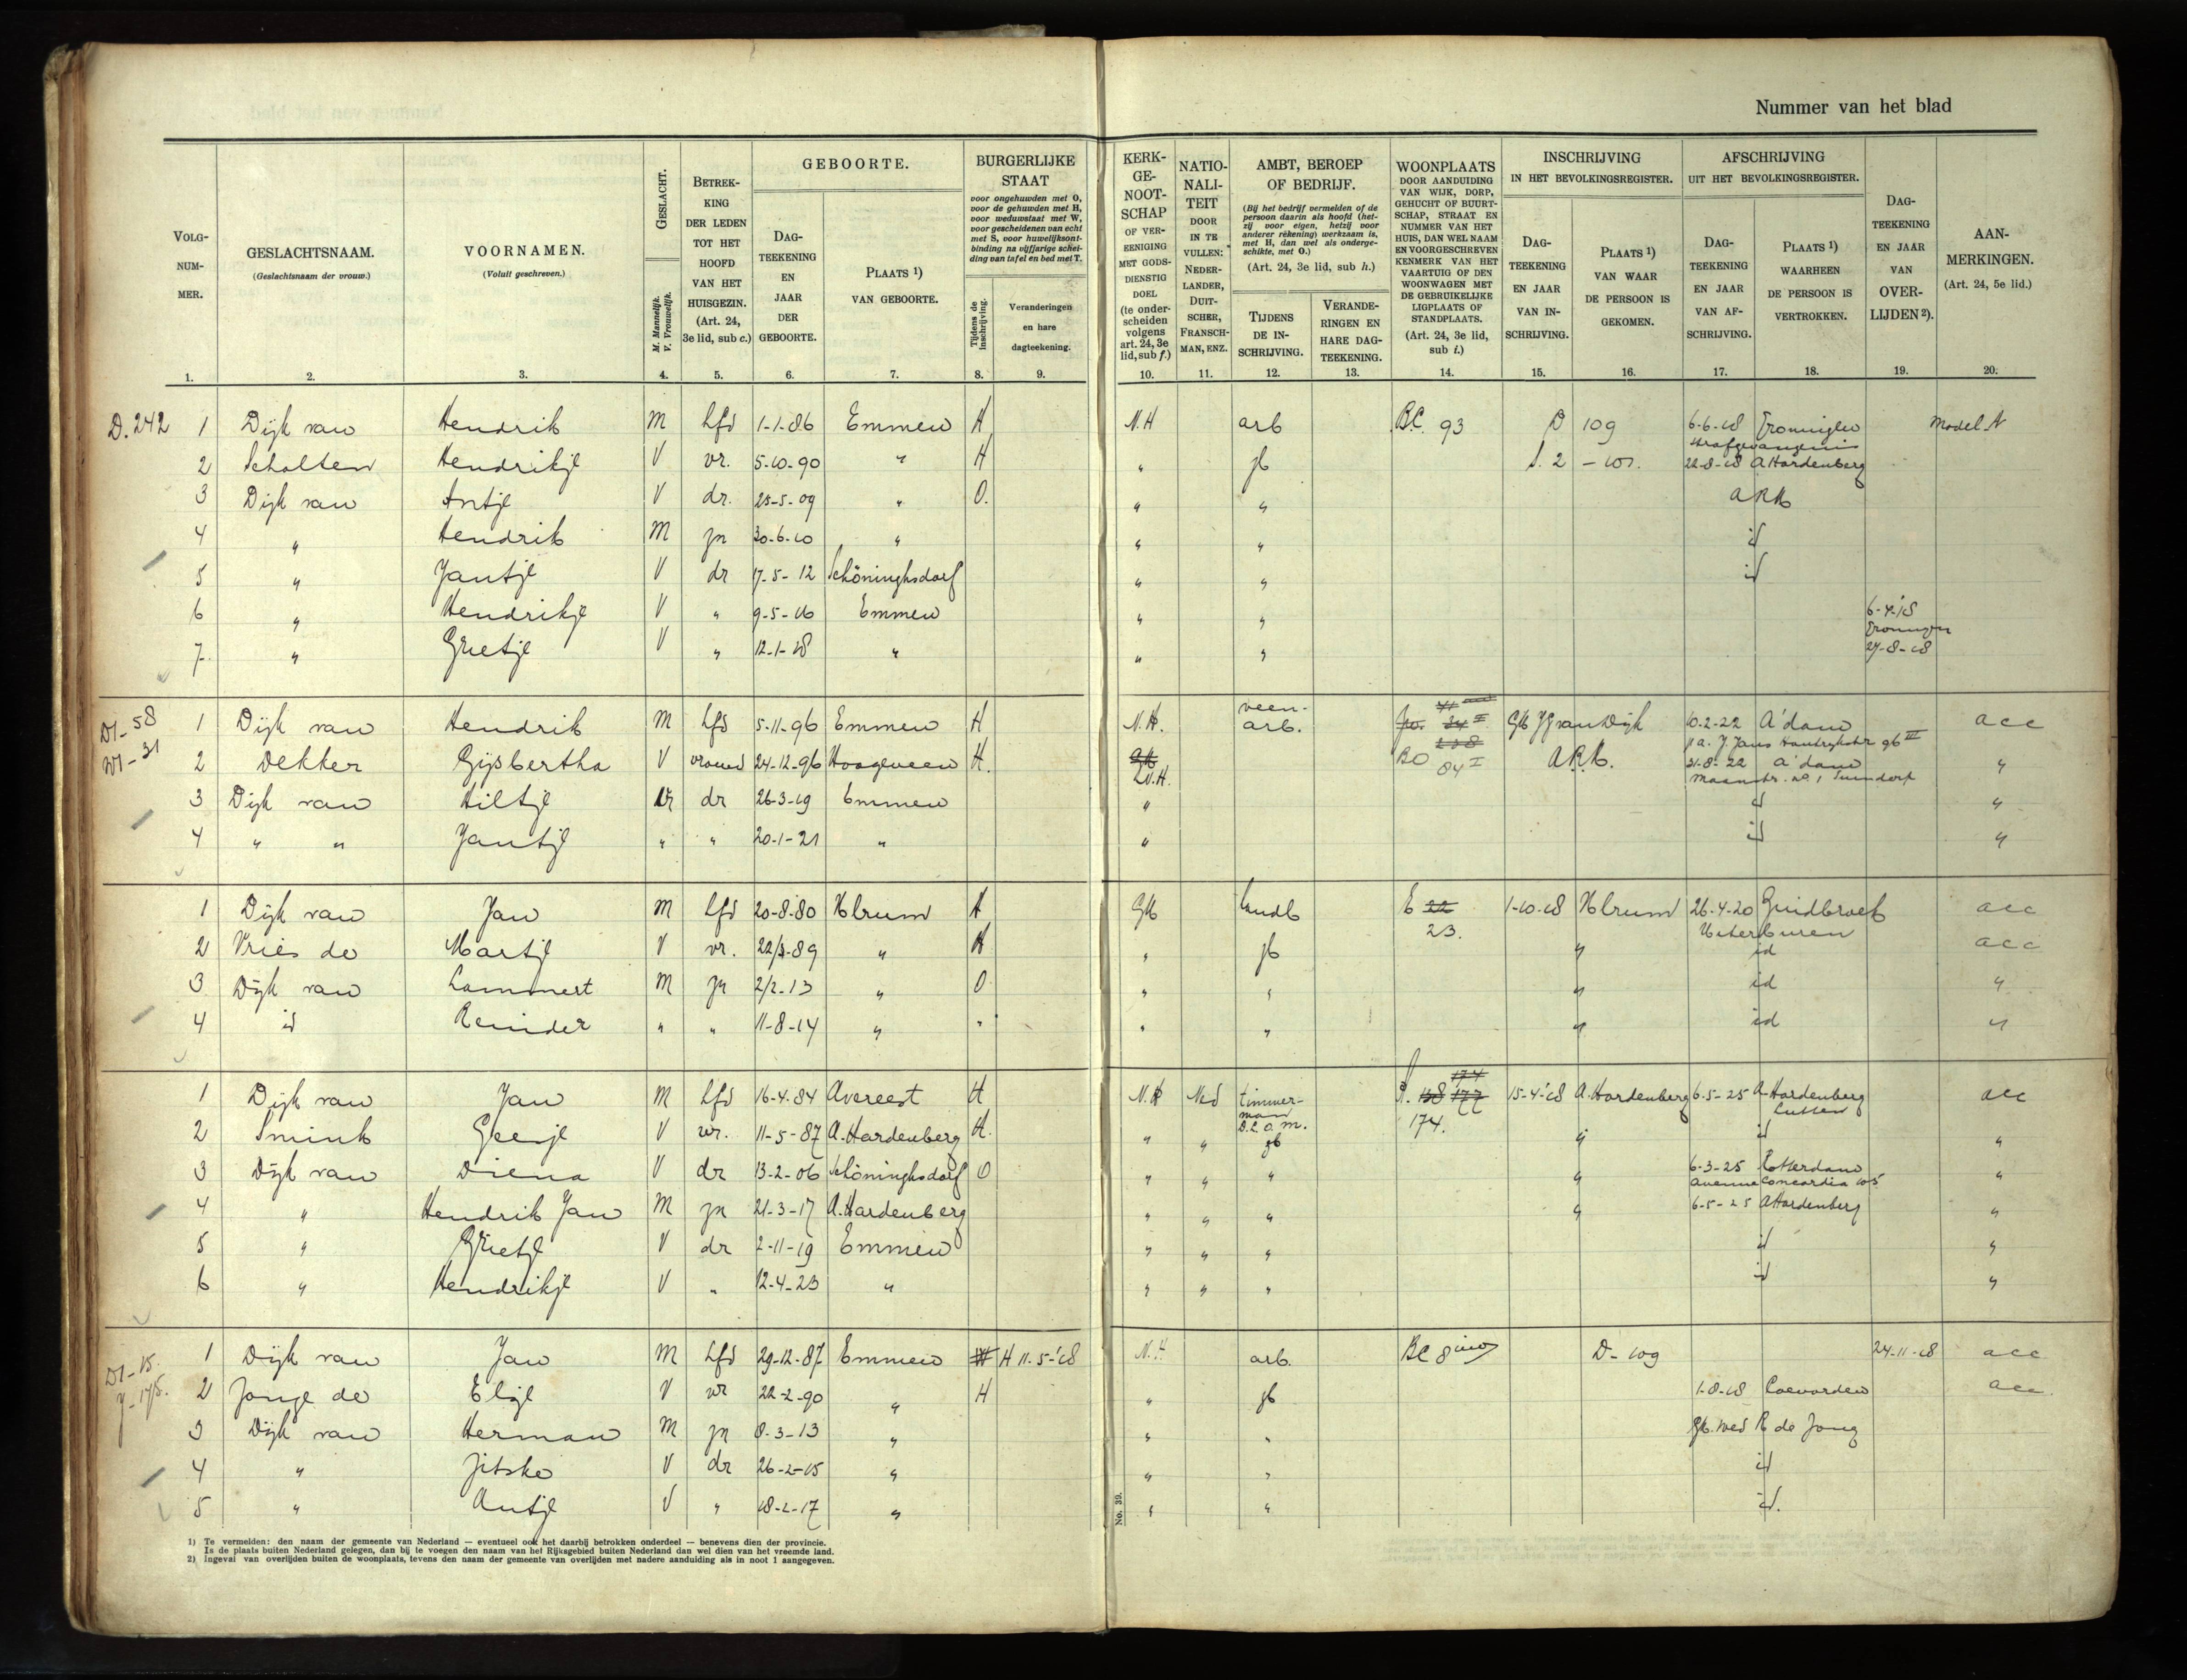 Nummer van het blad
VOLG-
NUM-
MER.
GESLACHTSNAAM.
(Geslachtsnaam der vrouw.)
VOORNAMEN.
(Voluit geschreven.)
GESLACHT.
M. Mannelijk.
V. Vrouwelijk.
BETREK-
KING
DER LEDEN
TOT HET
HOOFD
VAN HET
HUISGEZIN.
(Art. 24,
3e lid, sub c.)
GEBOORTE.
DAG-
TEEKENING
EN
JAAR
DER
GEBOORTE.
PLAATS 1)
VAN GEBOORTE.
BURGERLIJKE
STAAT
voor ongehuwden met O,
voor de gehuwden met H,
voor weduwstaat met W,
voor gescheidenen van echt
met S, voor huwelijksont-
binding na vijfjarige schei-
ding van tafel en bed met T.
Tijdens de
inschrijving.
Veranderingen
en hare
dagteekening.
KERK-
GE-
NOOT-
SCHAP
OF VER-
EENIGING
MET GODS-
DIENSTIG
DOEL
(te onder-
scheiden
volgens
art. 24, 3e
lid, sub f.)
NATIO-
NALI-
TEIT
DOOR
IN TE
VULLEN:
NEDER-
LANDER,
DUIT-
SCHER,
FRANSCH-
MAN, ENZ.
AMBT, BEROEP
OF BEDRIJF.
(Bij het bedrijf vermelden of de
persoon daarin als hoofd (het-
zij voor eigen, hetzij voor
anderer rekening) werkzaam is,
met H, dan wel als onderge-
schikte, met O.)
(Art. 24, 3e lid, sub h.)
TIJDENS
DE IN-
SCHRIJVING.
VERANDE-
RINGEN EN
HARE DAG-
TEEKENING.
WOONPLAATS
DOOR AANDUIDING
VAN WIJK, DORP,
GEHUCHT OF BUURT-
SCHAP, STRAAT EN
NUMMER VAN HET
HUIS, DAN WEL NAAM
EN VOORGESCHREVEN
KENMERK VAN HET
VAARTUIG OF DEN
WOONWAGEN MET
DE GEBRUIKELIJKE
LIGPLAATS OF
STANDPLAATS.
(Art. 24, 3e lid,
sub i.)
INSCHRIJVING
IN HET BEVOLKINGSREGISTER.
DAG-
TEEKENING
EN JAAR
VAN IN-
SCHRIJVING.
PLAATS 1)
VAN WAAR
DE PERSOON IS
GEKOMEN.
AFSCHRIJVING
UIT HET BEVOLKINGSREGISTER.
DAG-
TEEKENING
EN JAAR
VAN AF-
SCHRIJVING.
PLAATS 1)
WAARHEEN
DE PERSOON IS
VERTROKKEN.
DAG-
TEEKENING
EN JAAR
VAN
OVER-
LIJDEN 2).
AAN-
MERKINGEN.
(Art. 24, 5e lid.)
1. 2. 3. 4. 5. 6. 7. 8. 9. 10. 11. 12. 13. 14. 15. 16. 17. 18. 19. 20.
D.242 1 Dijk van Hendrik M hfd 1-1-86 Emmen H N.H arb B.C. 93 D 109 6-6-18 Groningen Model N
strafgevangenis
2 Scholten Hendrikje V vr. 5-10-90 " H " 22-8-18 A Hardenberg
3 Dijk van Antje V dr. 25-5-09 " O. " "
4 " Hendrik M zn 30-6-10 " " " id
5 " Jantje V dr 17-5-12 Schöninghsdorf " " id
6 " Hendrikje V " 9-5-16 Emmen " " 6-4-'18
Groningen
7 " Grietje V " 12-1-18 " " " 27-8-18
D1-58 1 Dijk van Hendrik M hfd 5-11-96 Emmen H N.H. veen-
arb. 10-2-22 A'dam acc
2 Dekker Gijsbertha V vrouw 24-12-96 Hoogeveen H. N.H. BO 84 I 21-8-22 A'dam "
3 Dijk van Hiltje dr 26-3-19 Emmen " id "
4 " " Jantje " " 20-1-21 " " id "
1 Dijk van Jan M hfd 20-8-80 Ulrum H GK landb E 22 1-10-18 Ulrum 26-4-20 Zuidbroek acc
23. Uiterburen
2 Vries de Martje V vr. 22/3-89 " H " " id acc
3 Dijk van Lammert M zn 2/2-13 " O " " " id "
4 id Reinder " " 11-8-14 " " " " " id "
1 Dijk van Jan M hfd 16-4-84 Avereest H N.H Ned timmer-
man 15-4-'18 A.Hardenberg 6-5-25 A-Hardenberg acc
Lutten
2 Smink Geesje V vr. 11-5-87 A.Hardenberg H. " " 174. " id "
3 Dijk van Diena V dr 13-2-06 Schöninghsdorf O " " " " 6-3-25 Rotterdam "
Avenue Concordia 105
4 " Hendrik Jan M zn 21-3-17 A.Hardenberg " " " " 6-5-25 A Hardenberg "
5 " Grietje V dr 2-11-19 Emmen " " " id "
6 " Hendrikje V " 12-4-23 " " " " id "
D1-15. 1 Dijk van Jan M hfd 29-12-87 Emmen H 11-5-'18 N.H arb. BC 8 D-109 24-11-18 acc
2 Jonge de Elsje V vr 22-2-90 " H " 1-8-18 Coevorden acc.
3 Dijk van Herman M zn 8-3-13 " " " Gk. wed R de Jong
4 " Jitske V dr 26-2-15 " " " id
5 " Antje V " 18-2-17 " " " id.
No. 39.
1) Te vermelden: den naam der gemeente van Nederland — eventueel ook het daarbij betrokken onderdeel — benevens dien der provincie.
Is de plaats buiten Nederland gelegen, dan bij te voegen den naam van het Rijksgebied buiten Nederland dan wel dien van het vreemde land.
2) Ingeval van overlijden buiten de woonplaats, tevens den naam der gemeente van overlijden met nadere aanduiding als in noot 1 aangegeven.